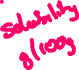 Solubility
g/100g